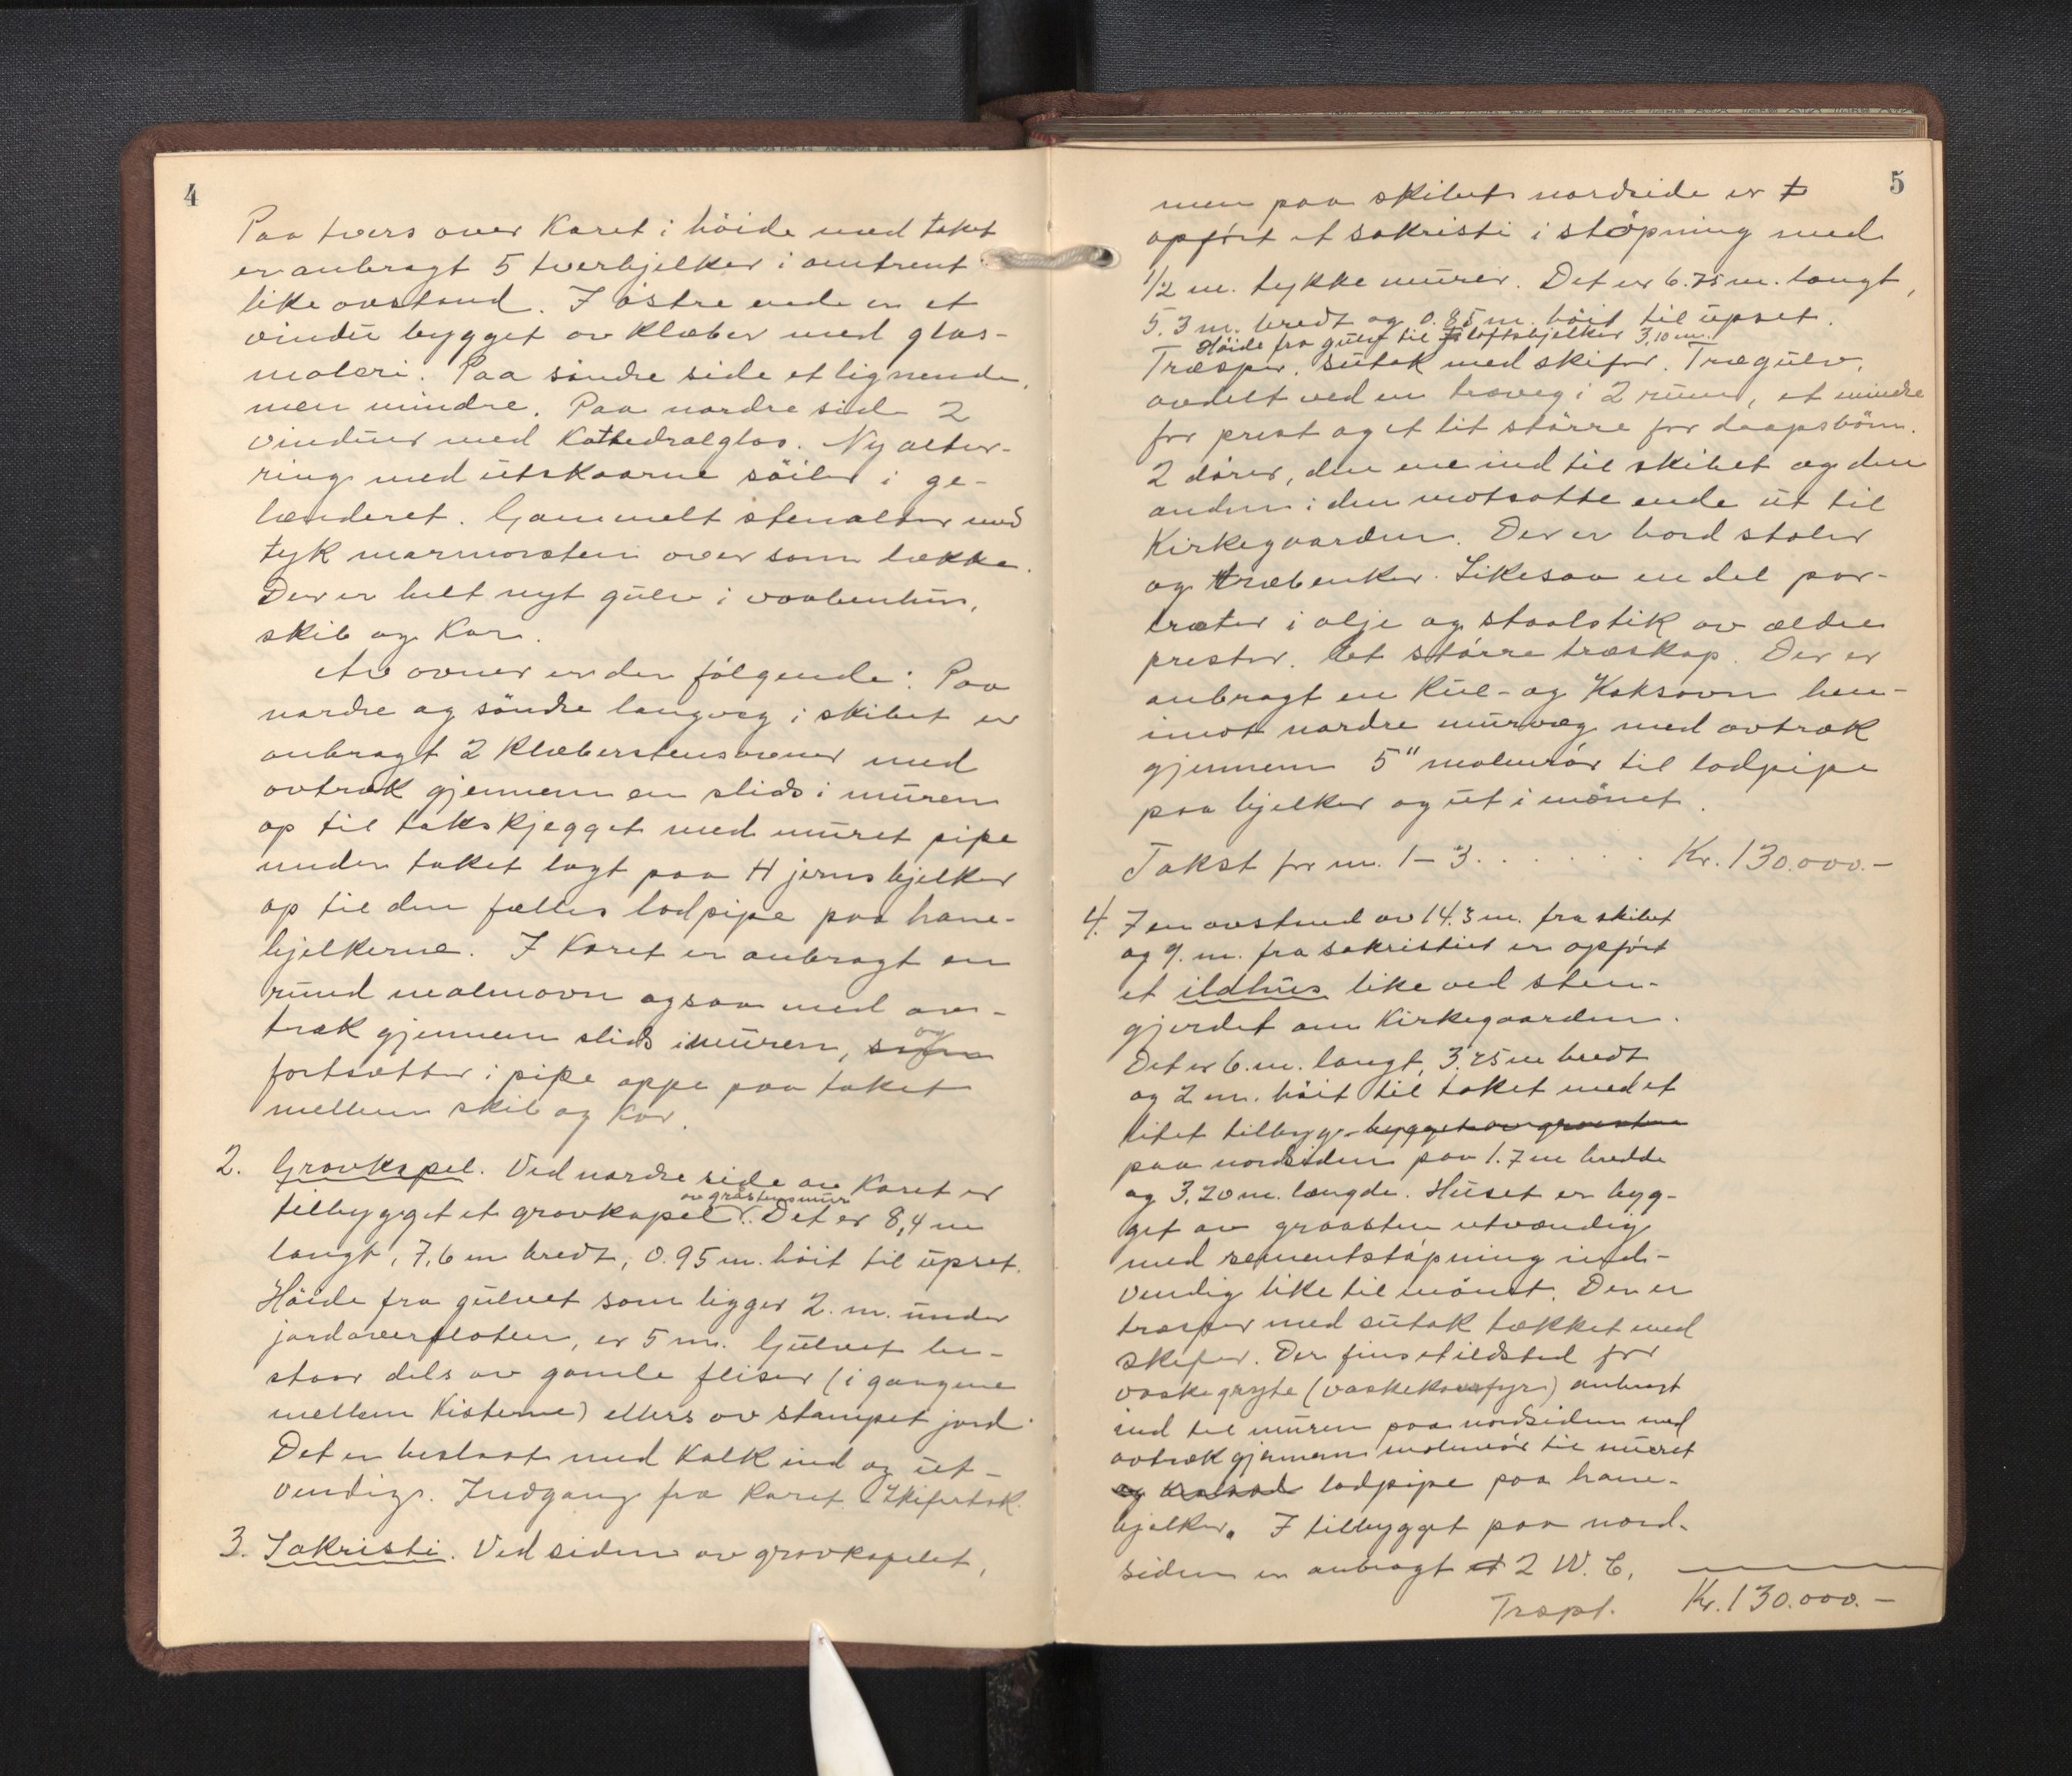 4
Paa tvers over Koret i höide med taket
er anbragt 5 tverbjelker i omtrent
like avstand. I östre ende er et
vindu bygget av Klæber med glas-
maleri. Paa söndre side et lignende,
men mindre. Paa nordre side 2
vinduer med Kathedralglas. Ny alter-
ring med utskaarne söiler i ge-
lænderet. Gammelt stenalter med
tyk marmorsten over som dække.
Der er helt nyt gulv i vaabenhus,
skib og Kor.
Av ovner er der fölgende: Paa
nordre og söndre langvæg i skibet er
anbragt 2 Klæberstensovner med
avtræk gjennem en slids i muren
op til takskjegget med muret pipe
under taket lagt paa 4 jernbjelker
op til den fælles lodpipe paa hane-
bjelkerne. I Koret er anbragt en
rund malmovn ogsaa med av-
træk gjennem slids i muren, som og
fortsætter i pipe oppe paa taket
mellem skib og Kor.
2. Gravkapel. Ved nordre side av Koret er
tilbygget et gravkapel av gråstensmur. Det er 8,4 m
langt, 7,6 m bredt, 0.95 m. höit til upset.
Höide fra gulvet som ligger 2. m. under
jordoverflaten, er 5 m. Gulvet be-
staar dels av gamle fliser (i gangene
mellem Kisterne) ellers av stampet jord.
Det er beslaat med Kalk ind og ut-
vendig. Indgang fra Koret. Skifertak.
3. Sakristi. Ved siden av gravkapelet,
5
men paa skibets nordside er
opfört et sakristi i stöpning med
1/2 m. tykke murer. Det er 6.75 m. langt,
5.3 m. bredt og 0.85 m. höit til upset.
Höide fra gulv til loftsbjelker 3,10 m.
Træsper, sutak med skifer. Trægulv,
avdelt ved en trævæg i 2 rum, et mindre
for prest og et lit större for daapsbörn.
2 dörer, den ene ind til skibet og den
anden i den motsatte ende ut til
Kirkegaarden. Der er bord stoler
og træbenker. Likesaa en del por-
træter i olje og staalstik av ældre
prester. Et större træskap. Der er
anbragt en Kul- og Koksovn hen-
imot nordre murvæg med avtræk
gjennem 5" malmrör til lodpipe
paa bjelker og ut i mönet.
Takst for nr. 1-3. . . . . . . Kr. 130.000.-
4. I en avstand av 14.3 m. fra skibet
og 9. m. fra sakristiet er opfört
et ildhus like ved sten-
gjerdet om Kirkegaarden.
Det er 6. m. langt, 3.25 m bredt
og 2 m. höit til taket med et
litet tilbyg bygget av graasten
paa nordsiden paa 1.7 m bredde
og 3,20 m. længde. Huset er byg-
get av graasten utvændig
med sementstöpning ind-
vendig like til mönet. Der er
træsper med sutak tækket med
skifer. Der fins et ildsted for
vaskegryte anbragt
ind til muren paa nordsiden med
avtræk gjennem malmrör til muret
lodpipe paa hane-
bjelker. I tilbygget paa nord-
siden er anbragt et 2 W. C.
Trspt. Kr. 130.000.-